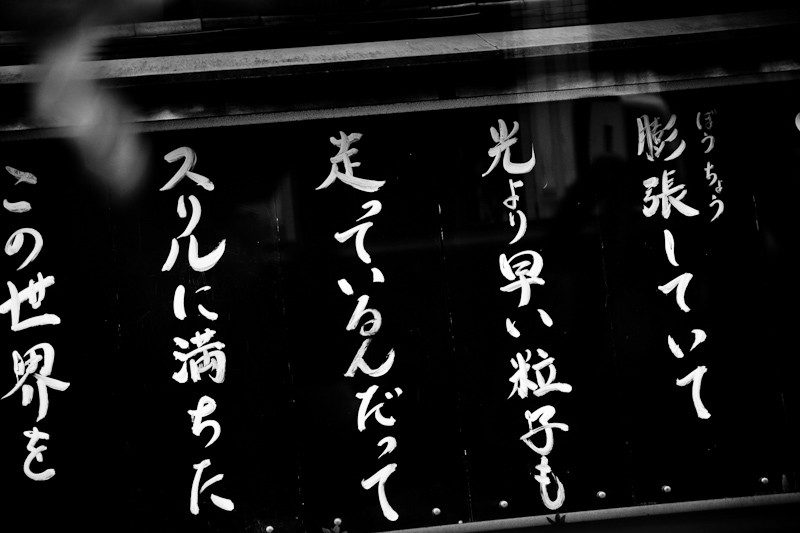 膨張していて
ぼうちょう
光より早い粒子も
走っているんだって
スリルに満ちた
この世界を